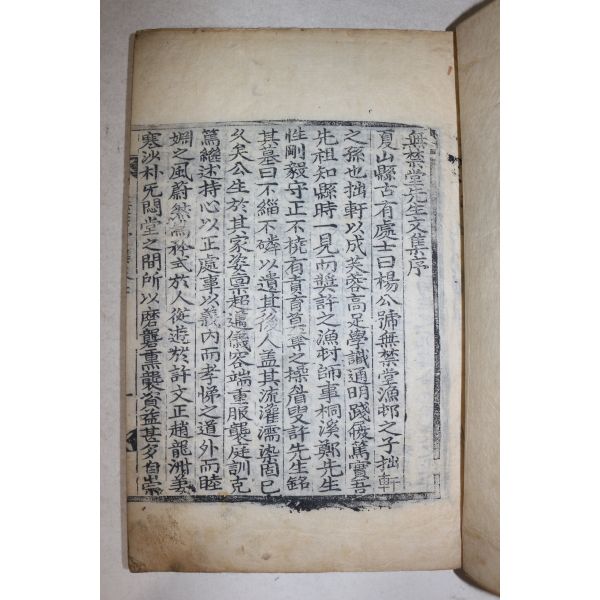 無禁堂先生文集序
夏山縣古有處士曰楊公號無禁堂漁邨之子拙軒
之孫也拙軒以成芙蓉高足學識通明踐履篤實吾
先祖知縣時一見而奬許之漁村師事桐溪鄭先生
性剛毅守正不橈有責育莫奪之操眉叟許先生銘
其墓曰不緇不磷以遺其後人盖其流灌濡染固已
久矣公生於其家姿稟超邁儀容端重服襲庭訓克
篤繼述持心以正處事以義內而孝悌之道外而睦
婣之風蔚然爲矜式於人從遊於許文正趙龍洲姜
寒沙朴无悶堂之間所以磨礱熏襲資益甚多自崇